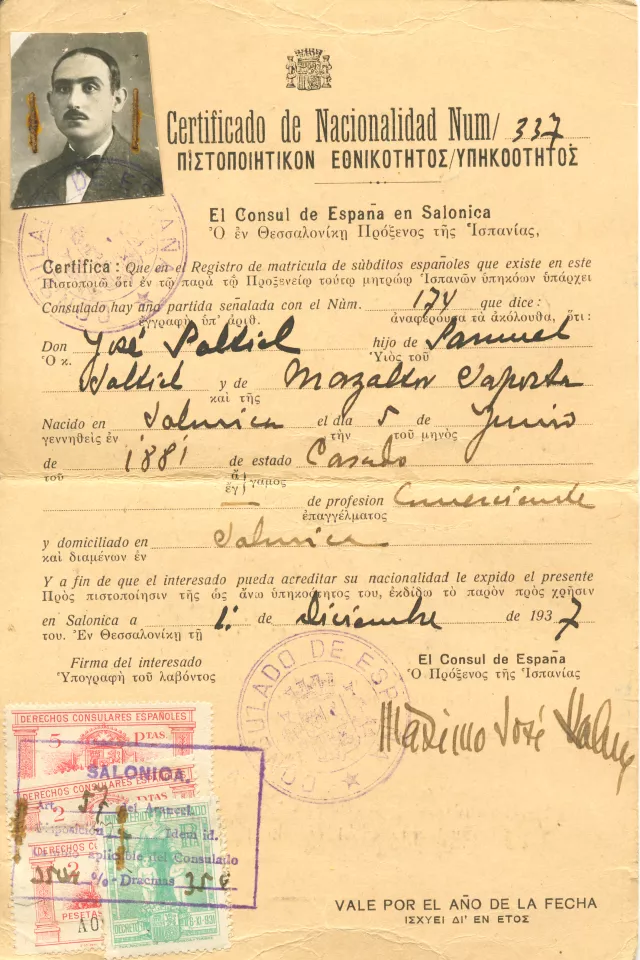 Certificado de Nacionalidad Num/ 337
ΠΙΣΤΟΠΟΙΗΤΙΚΟΝ ΕΘΝΙΚΟΤΗΤΟΣ/ΥΠΗΚΟΟΤΗΤΟΣ
El Consul de España en Salonica
Ὁ ἐν Θεσσαλονίκῃ Πρόξενος τῆς Ἱσπανίας,
Certifica: Que en el Registro de matricula de súbditos españoles que existe en este
Πιστοποιῶ ὅτι ἐν τῷ παρὰ τῷ Προξενείῳ τούτῳ μητρώῳ Ἱσπανῶν ὑπηκόων ὑπάρχει
Consulado hay una partida señalada con el Núm. 174 que dice:
ἐγγραφὴ ὑπ' ἀριθ. ἀναφέρουσα τὰ ἀκόλουθα, ὅτι:
Don José Saltiel hijo de Samuel
Ὁ κ. Υἱὸς τοῦ
Saltiel y de Mazaltov Saporta
καὶ τῆς
Nacido en Salonica el dia 5 de Junio
γεννηθεὶς ἐν τὴν τοῦ μηνὸς
de 1881 de estado Casado
τοῦ ἄ
ἔγ } γαμος
— de profesion Comerciante
ἐπαγγέλματος
y domiciliado en Salonica
καὶ διαμένων ἐν
Y a fin de que el interesado pueda acreditar su nacionalidad le expido el presente
Πρὸς πιστοποίησιν τῆς ὡς ἄνω ὑπηκοότητος του, ἐκδίδω τὸ παρὸν πρὸς χρῆσιν
en Salonica a 1º de Diciembre de 1937
του. Ἐν Θεσσαλονίκῃ τῇ
Firma del interesado El Consul de España
Ὑπογραφὴ τοῦ λαβόντος Ὁ Πρόξενος τῆς Ἱσπανίας
CONSULADO DE ESPAÑA
Maximo José
DERECHOS CONSULARES ESPAÑOLES
5 PTAS.
SALONICA.
DERECHOS CONSULARES ESPAÑOLES
2 PTAS
Art. 57 del Arancel
Disposición Idem id.
aplicible del Consulado
% Dracmas 350
2
PESETAS
VALE POR EL AÑO DE LA FECHA
ΙΣΧΥΕΙ ΔΙ' ΕΝ ΕΤΟΣ